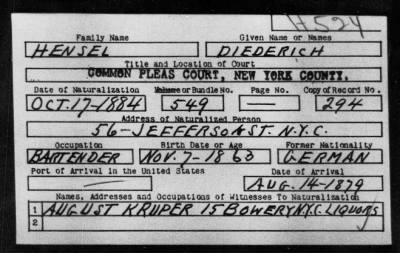 H524
Family Name Given Name or Names
HENSEL DIEDERICH
Title and Location of Court
COMMON PLEAS COURT, NEW YORK COUNTY.
Date of Naturalization Volume or Bundle No. Page No. Copy of Record No.
OCT. 17-1884 549 — 294
Address of Naturalized Person
56-JEFFERSON ST. N.Y.C.
Occupation Birth Date or Age Former Nationality
BARTENDER NOV. 7-1860 GERMAN
Port of Arrival in the United States Date of Arrival
— AUG. 14-1879
Names, Addresses and Occupations of Witnesses To Naturalization
1 AUGUST KRUPER 15 BOWERY N.Y.C. LIQUORS
2